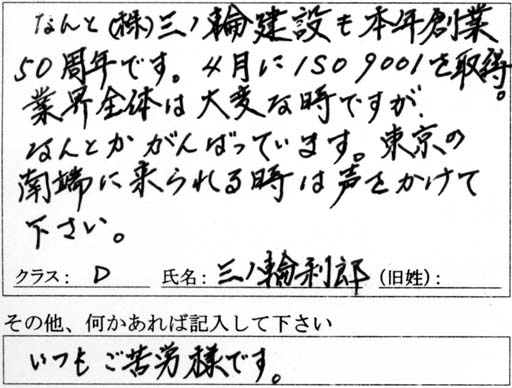 なんと(株)三ノ輪建設も本年創業
50周年です。4月にISO9001を取得。
業界全体は大変な時ですが、
なんとかがんばっています。東京の
南端に来られる時は声をかけて
下さい。
クラス: D 氏名: 三ノ輪利郎 (旧姓: )
その他、何かあれば記入して下さい
いつもご苦労様です。